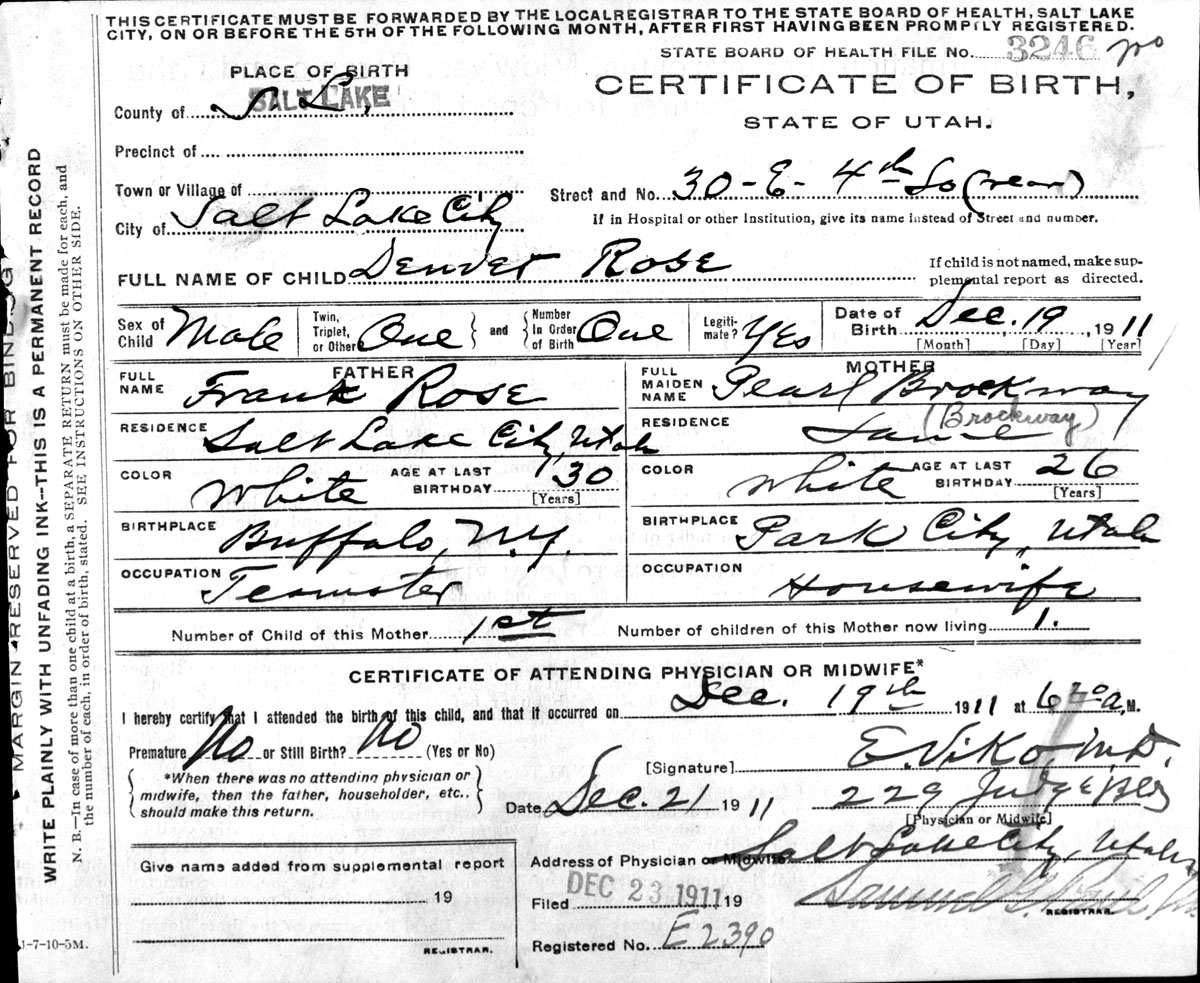 THIS CERTIFICATE MUST BE FORWARDED BY THE LOCAL REGISTRAR TO THE STATE BOARD OF HEALTH, SALT LAKE
CITY, ON OR BEFORE THE 5TH OF THE FOLLOWING MONTH, AFTER FIRST HAVING BEEN PROMPTLY REGISTERED.
STATE BOARD OF HEALTH FILE No. 3246
PLACE OF BIRTH
CERTIFICATE OF BIRTH,
STATE OF UTAH.
County of S. L. SALT LAKE
Precinct of
Town or Village of
Street and No. 30-E- 4th So (rear)
City of Salt Lake City
If in Hospital or other Institution, give its name instead of Street and number.
FULL NAME OF CHILD Denver Rose
If child is not named, make sup-
plemental report as directed.
Sex of Child Male
Twin, Triplet, or Other One and Number In Order of Birth One
Legiti-mate? Yes
Date of Birth Dec. 19, 1911
[Month] [Day] [Year]
FATHER
FULL NAME Frank Rose
RESIDENCE Salt Lake City, Utah
COLOR White AGE AT LAST BIRTHDAY 30 [Years]
BIRTHPLACE Buffalo, N.Y.
OCCUPATION Teamster
MOTHER
FULL MAIDEN NAME Pearl Brockway
(Brockway)
RESIDENCE Same
COLOR White AGE AT LAST BIRTHDAY 26 [Years]
BIRTHPLACE Park City, Utah
OCCUPATION Housewife
Number of Child of this Mother 1st Number of children of this Mother now living 1.
CERTIFICATE OF ATTENDING PHYSICIAN OR MIDWIFE*
I hereby certify that I attended the birth of this child, and that it occurred on Dec. 19th 1911 at 6 20 a, M.
Premature No or Still Birth? No (Yes or No)
*When there was no attending physician or
midwife, then the father, householder, etc.,
should make this return.
[Signature] E. Viko M.D.
Date Dec. 21 1911 229 Judge Bldg
[Physician or Midwife]
Address of Physician or Midwife Salt Lake City, Utah
Filed DEC 23 1911 19
Samuel G. Paul
REGISTRAR.
Registered No. E 2390
Give name added from supplemental report
19
REGISTRAR.
1-7-10-5M.
MARGIN RESERVED FOR BINDING
WRITE PLAINLY WITH UNFADING INK--THIS IS A PERMANENT RECORD
N. B.—In case of more than one child at a birth, a SEPARATE RETURN must be made for each, and
the number of each, in order of birth, stated. SEE INSTRUCTIONS ON OTHER SIDE.